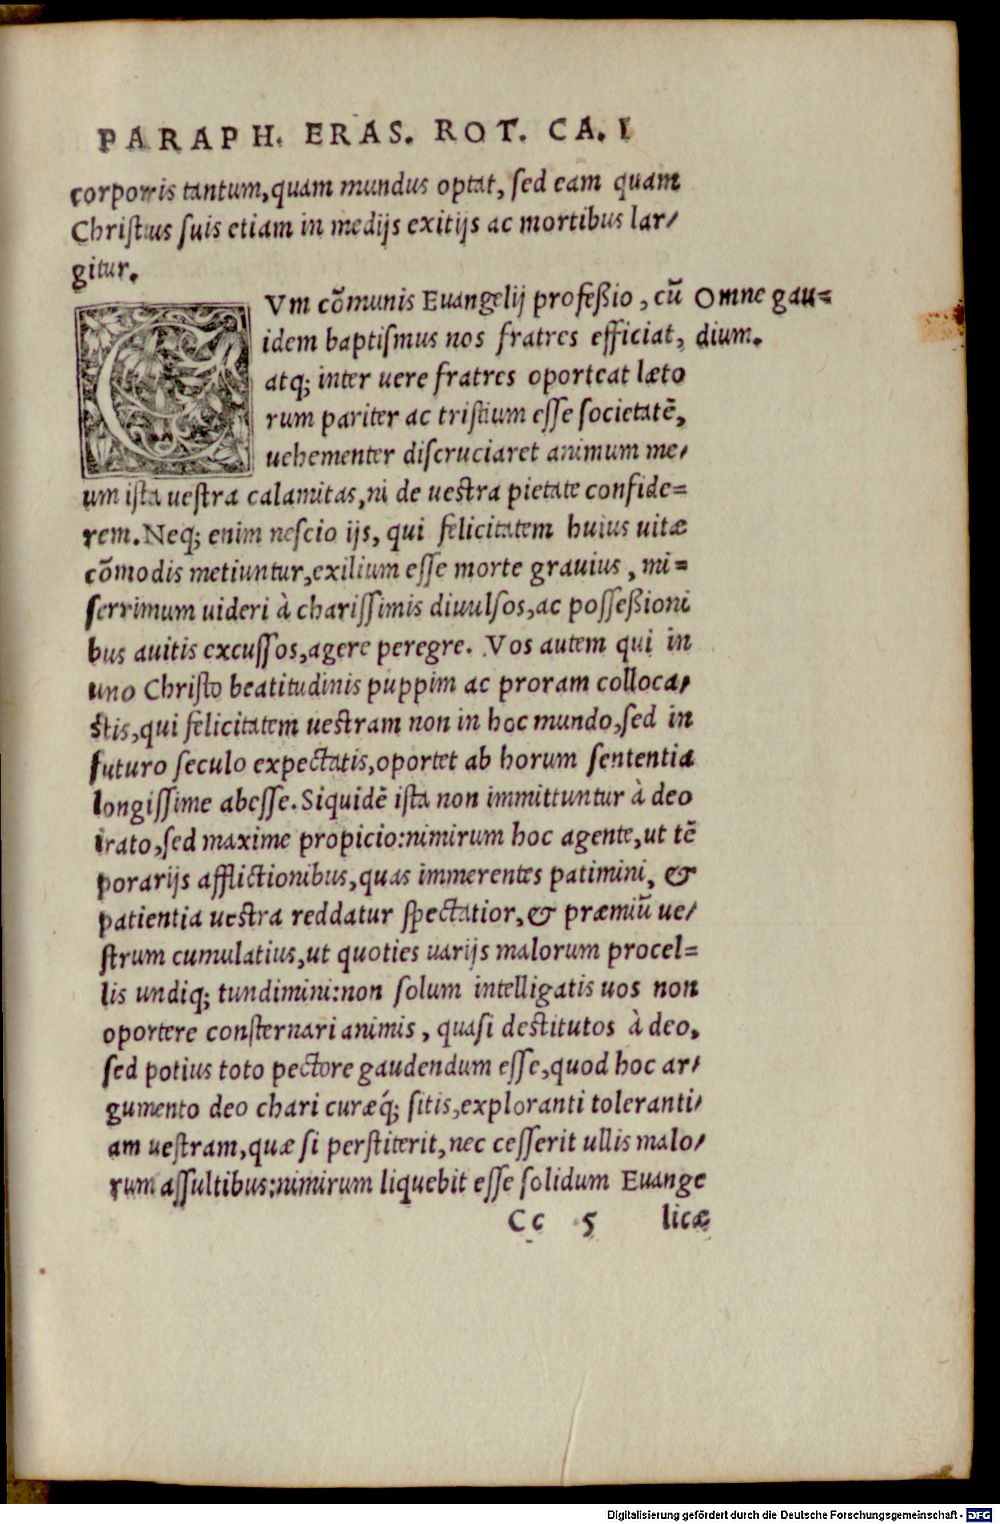 PARAPH. ERAS. ROT. CA. I
corporis tantum, quam mundus optat, sed eam quam
Christus suis etiam in medijs exitijs ac mortibus lar/
gitur.
CVm cōmunis Euangelij profeßio, cū
idem baptismus nos fratres efficiat,
atq; inter uere fratres oporteat læto
rum pariter ac tristium esse societatē,
uehementer discruciaret animum me/
um ista uestra calamitas, ni de uestra pietate confide=
rem. Neq; enim nescio ijs, qui felicitatem huius uitæ
cōmodis metiuntur, exilium esse morte grauius, mi=
serrimum uideri à charissimis diuulsos, ac posseßioni
bus auitis excussos, agere peregre. Vos autem qui in
uno Christo beatitudinis puppim ac proram colloca/
stis, qui felicitatem uestram non in hoc mundo, sed in
futuro seculo expectatis, oportet ab horum sententia
longissime abesse. Siquidē ista non immittuntur à deo
irato, sed maxime propicio: nimirum hoc agente, ut tē
porarijs afflictionibus, quas immerentes patimini, &
patientia uestra reddatur spectatior, & præmiū ue/
strum cumulatius, ut quoties uarijs malorum procel=
lis undiq; tundimini: non solum intelligatis uos non
oportere consternari animis, quasi destitutos à deo,
sed potius toto pectore gaudendum esse, quod hoc ar/
gumento deo chari curæq́; sitis, exploranti toleranti/
am uestram, quæ si perstiterit, nec cesserit ullis malo/
rum assultibus: nimirum liquebit esse solidum Euange
Cc 5 licæ
Omne gau=
dium.
Digitalisierung gefördert durch die Deutsche Forschungsgemeinschaft - DFG